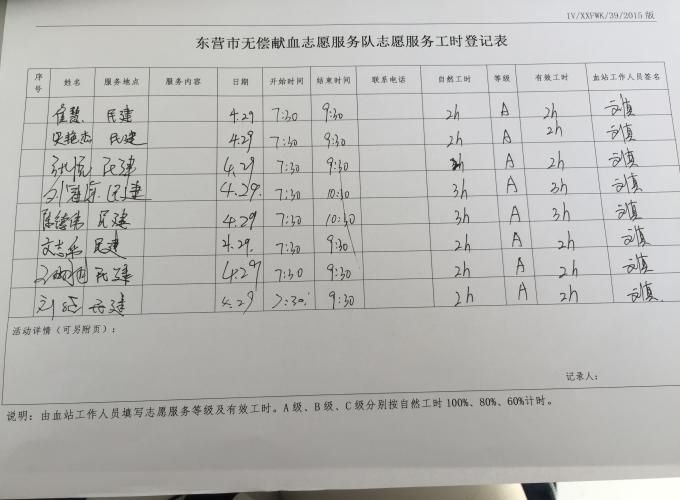 IV/XXFWK/39/2015 版
东营市无偿献血志愿服务队志愿服务工时登记表
序号 姓名 服务地点 服务内容 日期 开始时间 结束时间 联系电话 自然工时 等级 有效工时 血站工作人员签名
崔慧 民建 4.29 7:30 9:30 2h A 2h
民建 4.29 7:30 9:30 2h A 2h
民建 4.29 7:30 9:30 2h A 2h
民建 4.29. 7:30 10:30 3h A 3h
陈德伟 民建 4.29 7:30 10:30 3h A 3h
民建 4.29. 7:30 9:30 2h A 2h
民建 4.29 7:30 9:30 2h A 2h
民建 4.29 7:30 9:30 2h A 2h
活动详情（可另附页）：
记录人：
说明：由血站工作人员填写志愿服务等级及有效工时。A 级、B 级、C 级分别按自然工时 100%、80%、60%计时。